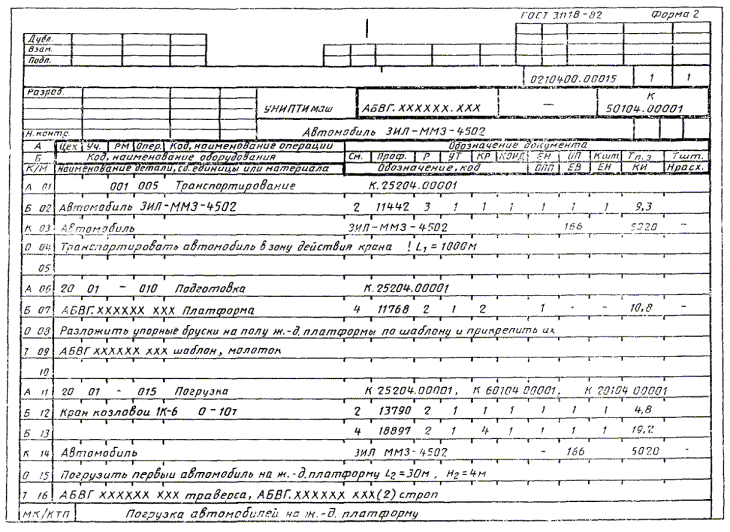 ГОСТ 3.1118-82 Форма 2
Дубл.
Взам.
Подл.
0210400.00015 1 1
Разраб.
УНИПТИмаш АБВГ.XXXXXX.XXX — К 50104.00001
Н.контр.
Автомобиль ЗИЛ-ММЗ-4502
А Цех Уч. РМ Опер. Код, наименование операции Обозначение документа
Б Код, наименование оборудования См. Проф. Р УТ КР КОИД ЕН ОП Кшт Тп.з Тшт.
К/М Наименование детали, сб. единицы или материала Обозначение, код ОПП ЕВ ЕН КИ Нрасх.
А 01 001 005 Транспортирование К.25204.00001
Б 02 Автомобиль ЗИЛ-ММЗ-4502 2 11442 3 1 1 1 1 1 1 9,3
К 03 Автомобиль ЗИЛ-ММЗ-4502 166 5020 –
О 04 Транспортировать автомобиль в зону действия крана ! L₁ = 1000м
05
А 06 20 01 – 010 Подготовка К.25204.00001
Б 07 АБВГ.XXXXXX XXX Платформа 4 11768 2 1 2 1 – – 10,8 –
О 08 Разложить упорные бруски на полу ж.-д. платформы по шаблону и прикрепить их
Т 09 АБВГ XXXXXX XXX шаблон, молоток
10
А 11 20 01 – 015 Погрузка К 25204.00001, К 60104 00001, К 20104 00001
Б 12 Кран козловой 1К-6 0-10т 2 13790 2 1 1 1 1 1 4,8
Б 13 4 18897 2 1 4 1 1 1 19,2
К 14 Автомобиль ЗИЛ ММЗ-4502 – 166 5020 –
О 15 Погрузить первый автомобиль на ж.-д. платформу L₂=30м, H₂=4м
Т 16 АБВГ XXXXXX XXX траверса, АБВГ.XXXXXX XXX(2) строп
МК/КТП Погрузка автомобилей на ж.-д. платформу